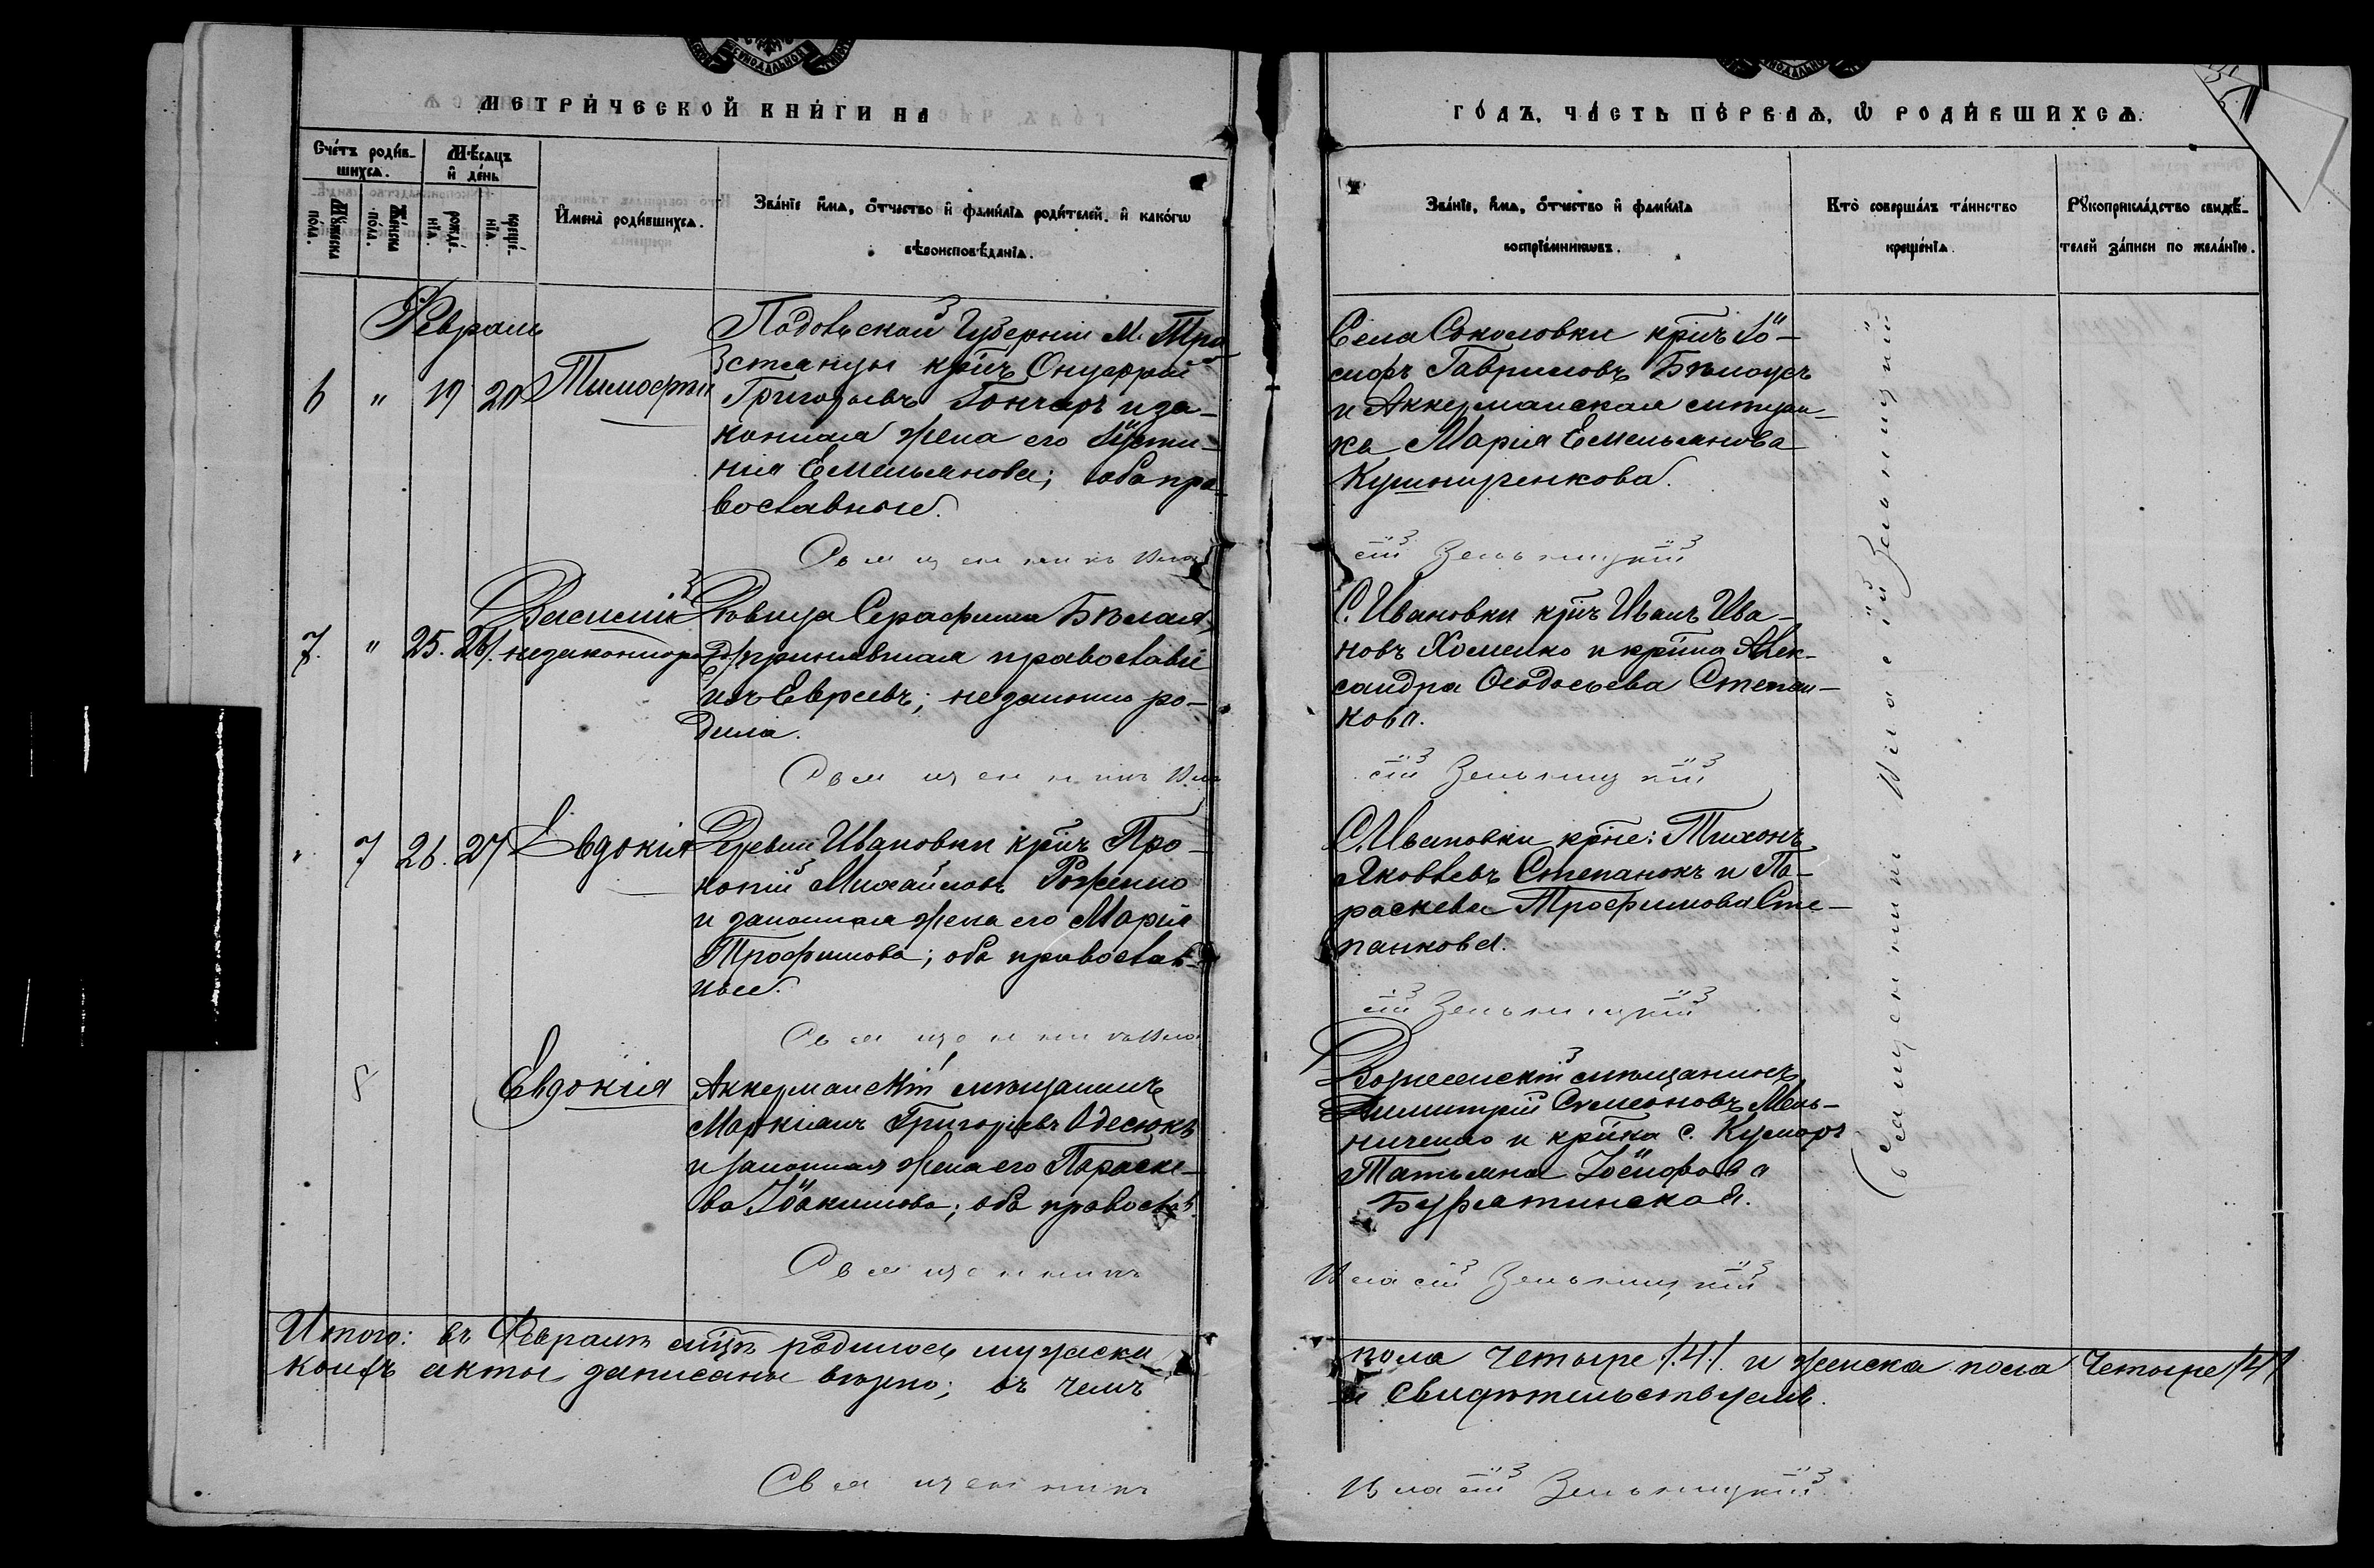 МЕТРИЧЕСКОЙ КНИГИ НА
Счетъ родив-
шихся.
Мѣсяцъ
и день
Мужеска
пола.
Женска
пола.
рожде-
нія.
креще-
нія.
Имена родившихся.
Званіе имя, отчество и фамилія родителей, и какогω
вѣроисповѣданія.
Февраль
6 " 19 20 Тимофей
Подольской Губерніи М.
стянцы кр̃нъ Онуфрій
Григорьевъ Гончаръ и за-
конная жена его Іусти-
нія Емельянова; оба пра-
вославные.
Священникъ Вла
7. " 25. 26. Василій
незаконнорожд.
Дѣвица Серафима Бѣлая,
принявшая православіе
изъ Евреевъ; незаконно ро-
дила.
Священникъ Вла
" 7 26. 27 Евдокія
Деревни Ивановки кр̃нъ Про-
копій Михайловъ Роженко
и законная жена его Марія
Трофимова; оба православ-
ные.
Священникъ Вла
8 Евдокія
Аккерманскій мѣщанинъ
Маркіанъ Григорьевъ Одесюкъ
и законная жена его Параске-
ва Іоакимова; оба православ.
Священникъ
Итого: въ Февралѣ мц̃ѣ родилось мужеска
коихъ акты записаны вѣрно; въ чемъ
Священникъ
ГОДЪ, ЧАСТЬ ПЕРВАЯ, Ѡ РОДИВШИХСЯ.
Званіе, имя, отчество и фамилія
воспріемниковъ.
Кто совершалъ таинство
крещенія
Рукоприкладство свидѣ-
телей записи по желанію.
Села Соколовки кр̃нъ Іо-
сифъ Гавриловъ Бѣлоусъ
и Аккерманская мѣщан-
ка Марія Емельянова
Кушниренкова.
стій Зельницкій
С. Ивановки кр̃нъ Иванъ Ива-
новъ Хоменко и кр̃нка Алек-
сандра Феодосьева Степан-
кова.
стій Зельницкій
С. Ивановки кр̃не: Тихонъ
Яковлевъ Степанокъ и Па-
раскева Трофимова Сте-
панкова.
стій Зельницкій
Вознесенскій мѣщанинъ
Димитрій Симеоновъ Мель-
ниченко и кр̃нка с.
Татьяна Іосифова
Властій Зельницкій
Священникъ Власій Зельницкій
пола четыре /4/. и женска пола четыре /4/
и свидѣтельствуемъ.
Властій Зельницкій